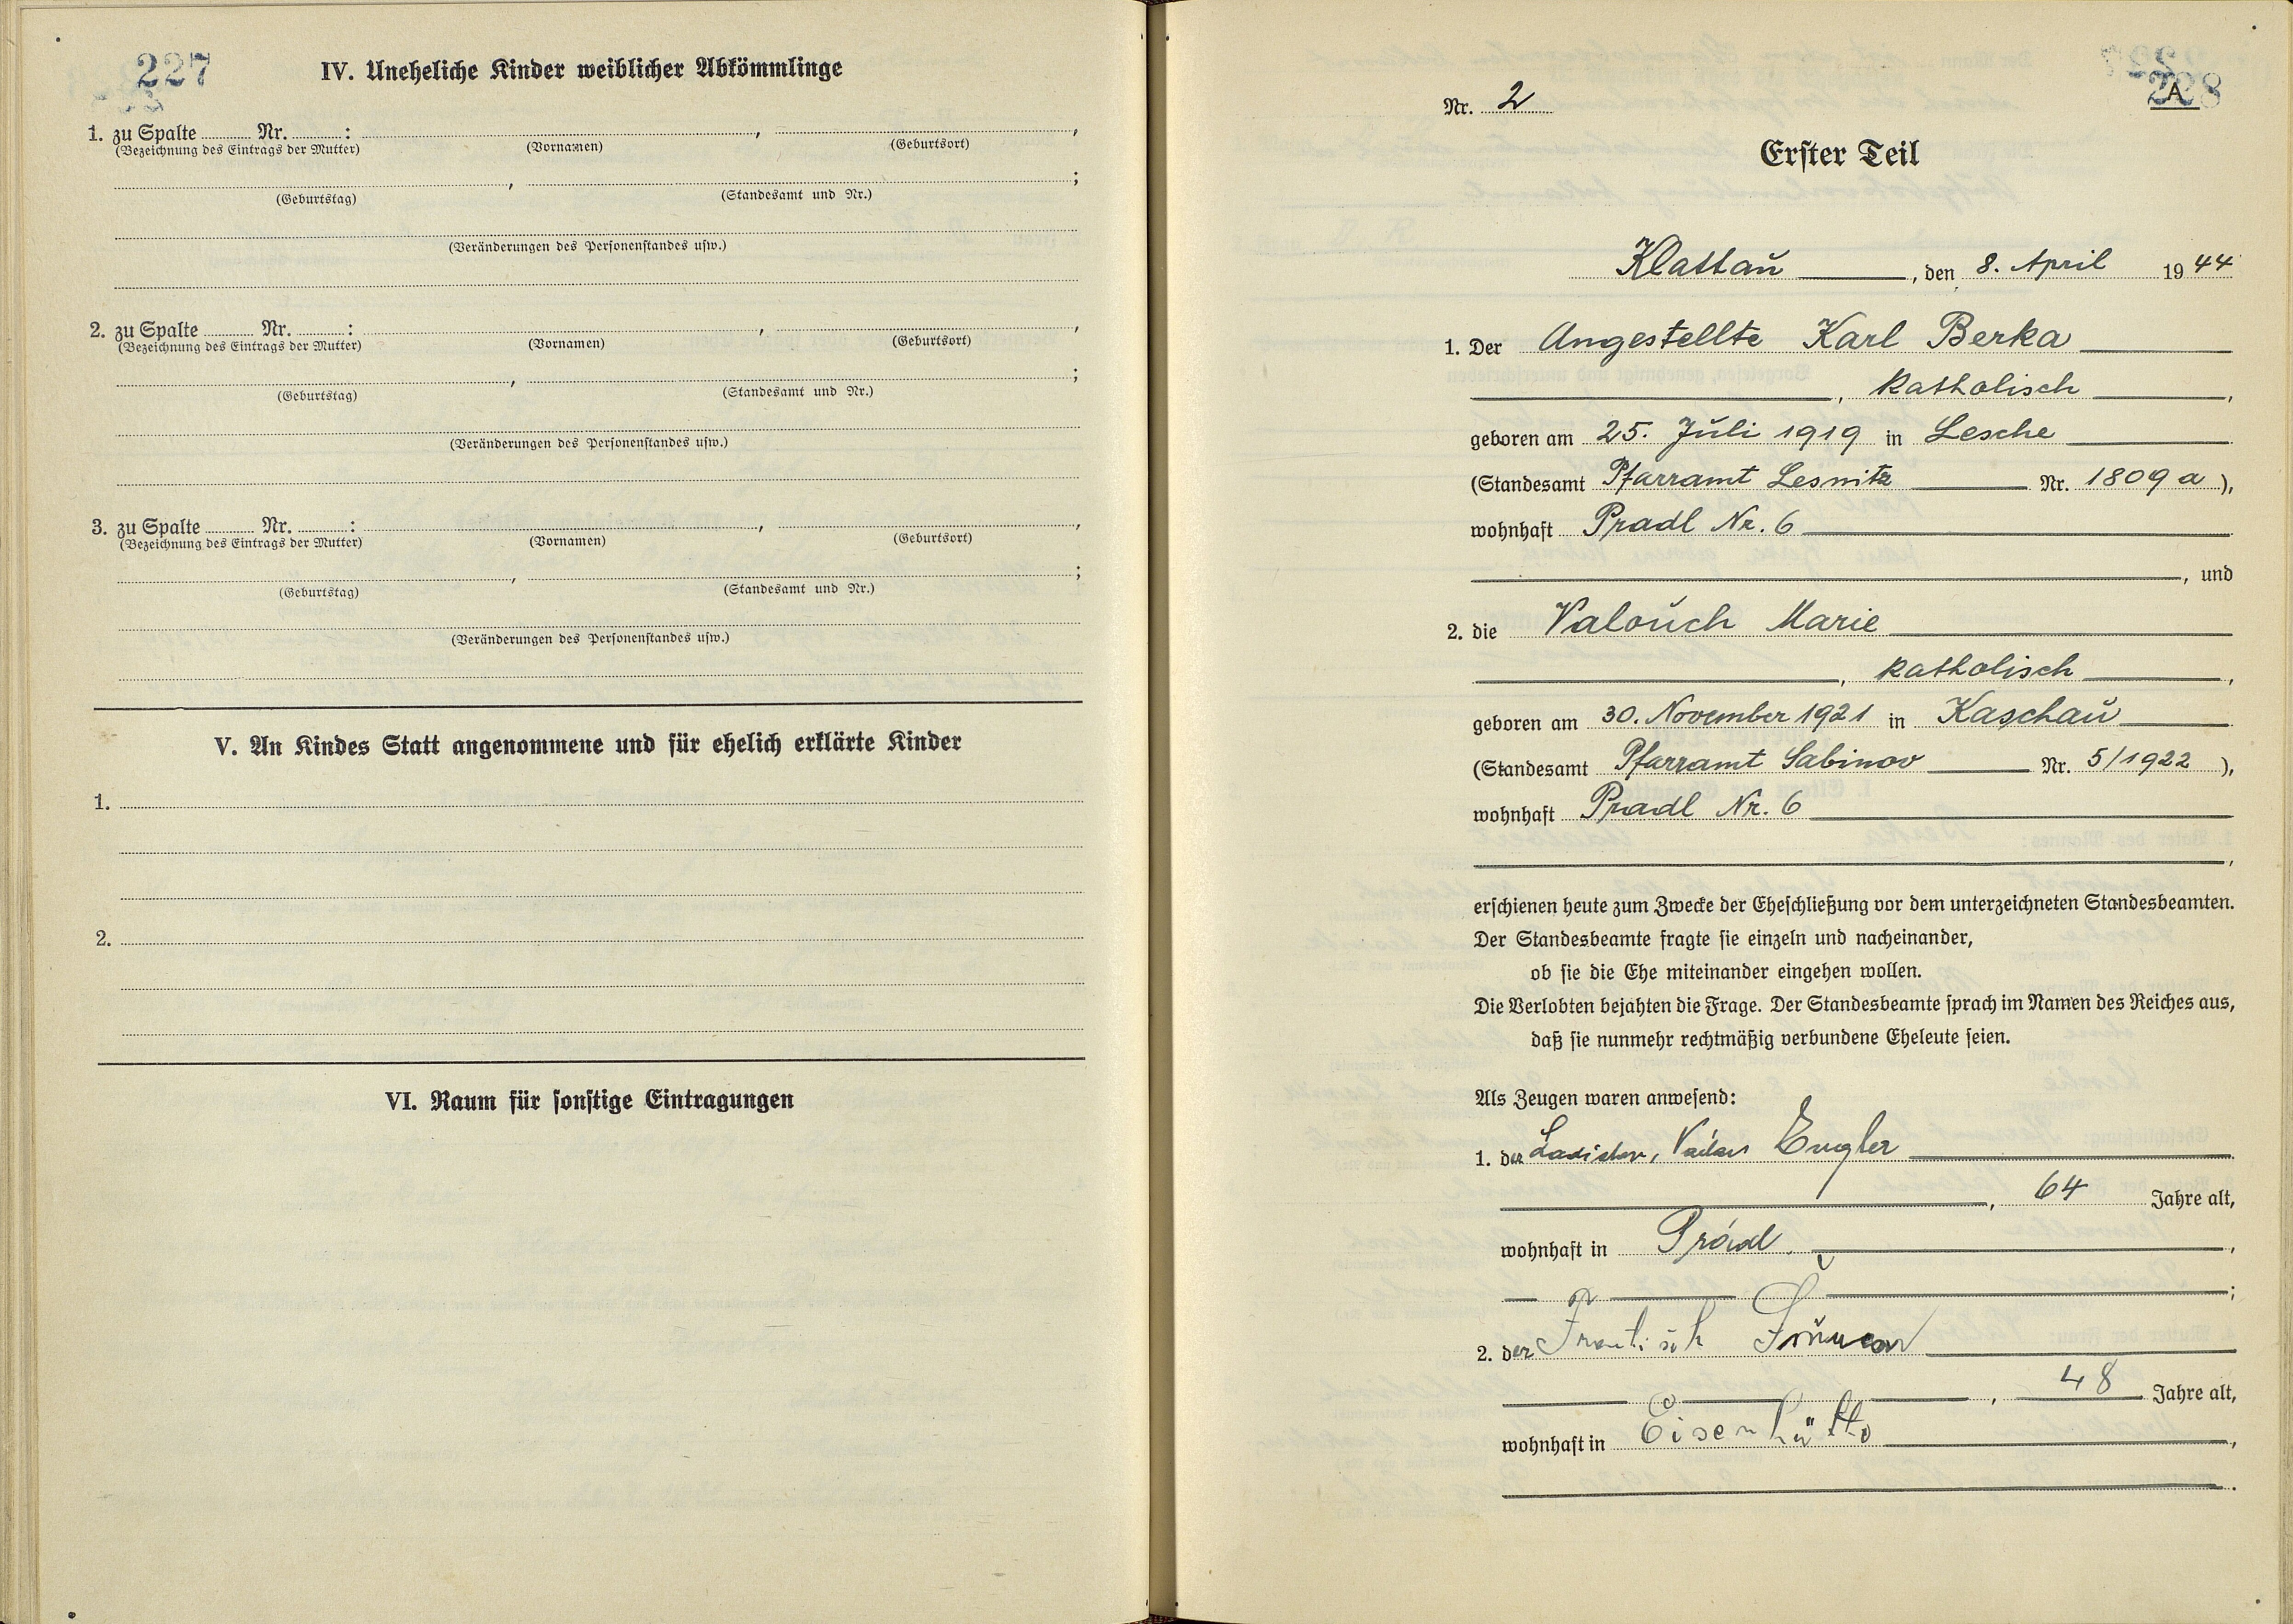 227
IV. Uneheliche Kinder weiblicher Abkömmlinge
1. zu Spalte Nr. : , ,
(Bezeichnung des Eintrags der Mutter) (Vornamen) (Geburtsort)
, ;
(Geburtstag) (Standesamt und Nr.)
(Veränderungen des Personenstandes usw.)
2. zu Spalte Nr. : , ,
(Bezeichnung des Eintrags der Mutter) (Vornamen) (Geburtsort)
, ;
(Geburtstag) (Standesamt und Nr.)
(Veränderungen des Personenstandes usw.)
3. zu Spalte Nr. : , ,
(Bezeichnung des Eintrags der Mutter) (Vornamen) (Geburtsort)
, ;
(Geburtstag) (Standesamt und Nr.)
(Veränderungen des Personenstandes usw.)
V. An Kindes Statt angenommene und für ehelich erklärte Kinder
1.
2.
VI. Raum für sonstige Eintragungen
228
A
Nr. 2
Erster Teil
Klattau, den 8. April 1944
1. Der Angestellte Karl Berka
, katholisch,
geboren am 25. Juli 1919 in Lesche
(Standesamt Pfarramt Lesnitz Nr. 1809 a),
wohnhaft Pradl Nr. 6
, und
2. die Valouch Marie
, katholisch,
geboren am 30. November 1921 in Kaschau
(Standesamt Pfarramt Sabinov Nr. 5/1922),
wohnhaft Pradl Nr. 6
,
erschienen heute zum Zwecke der Eheschließung vor dem unterzeichneten Standesbeamten.
Der Standesbeamte fragte sie einzeln und nacheinander,
ob sie die Ehe miteinander eingehen wollen.
Die Verlobten bejahten die Frage. Der Standesbeamte sprach im Namen des Reiches aus,
daß sie nunmehr rechtmäßig verbundene Eheleute seien.
Als Zeugen waren anwesend:
1. der Ladislav, Engler
, 64 Jahre alt,
wohnhaft in Prádl.,
;
2. der
, 48 Jahre alt,
wohnhaft in Eisenhütte,
.